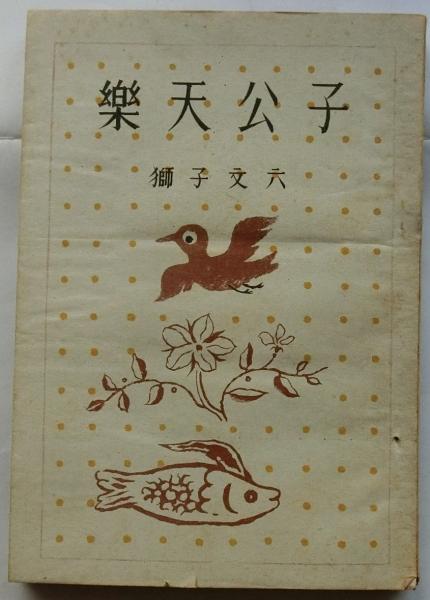 樂天公子
獅子文六